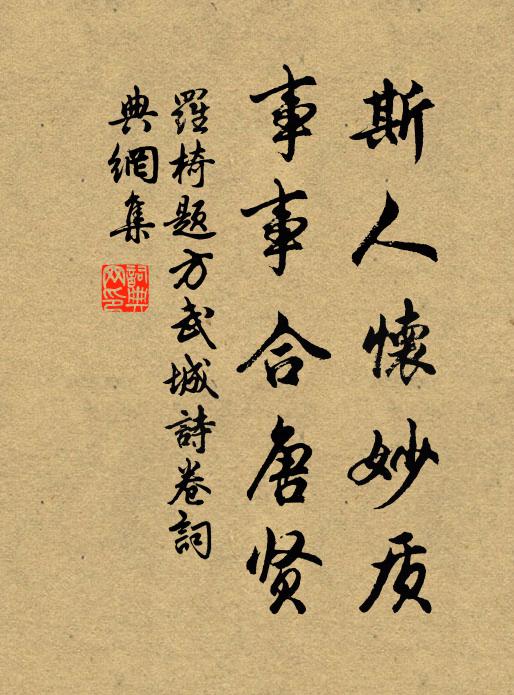 斯人懷妙质
事事合唐贤
羅椅题方武城詩卷詞
典網集
詞典網印